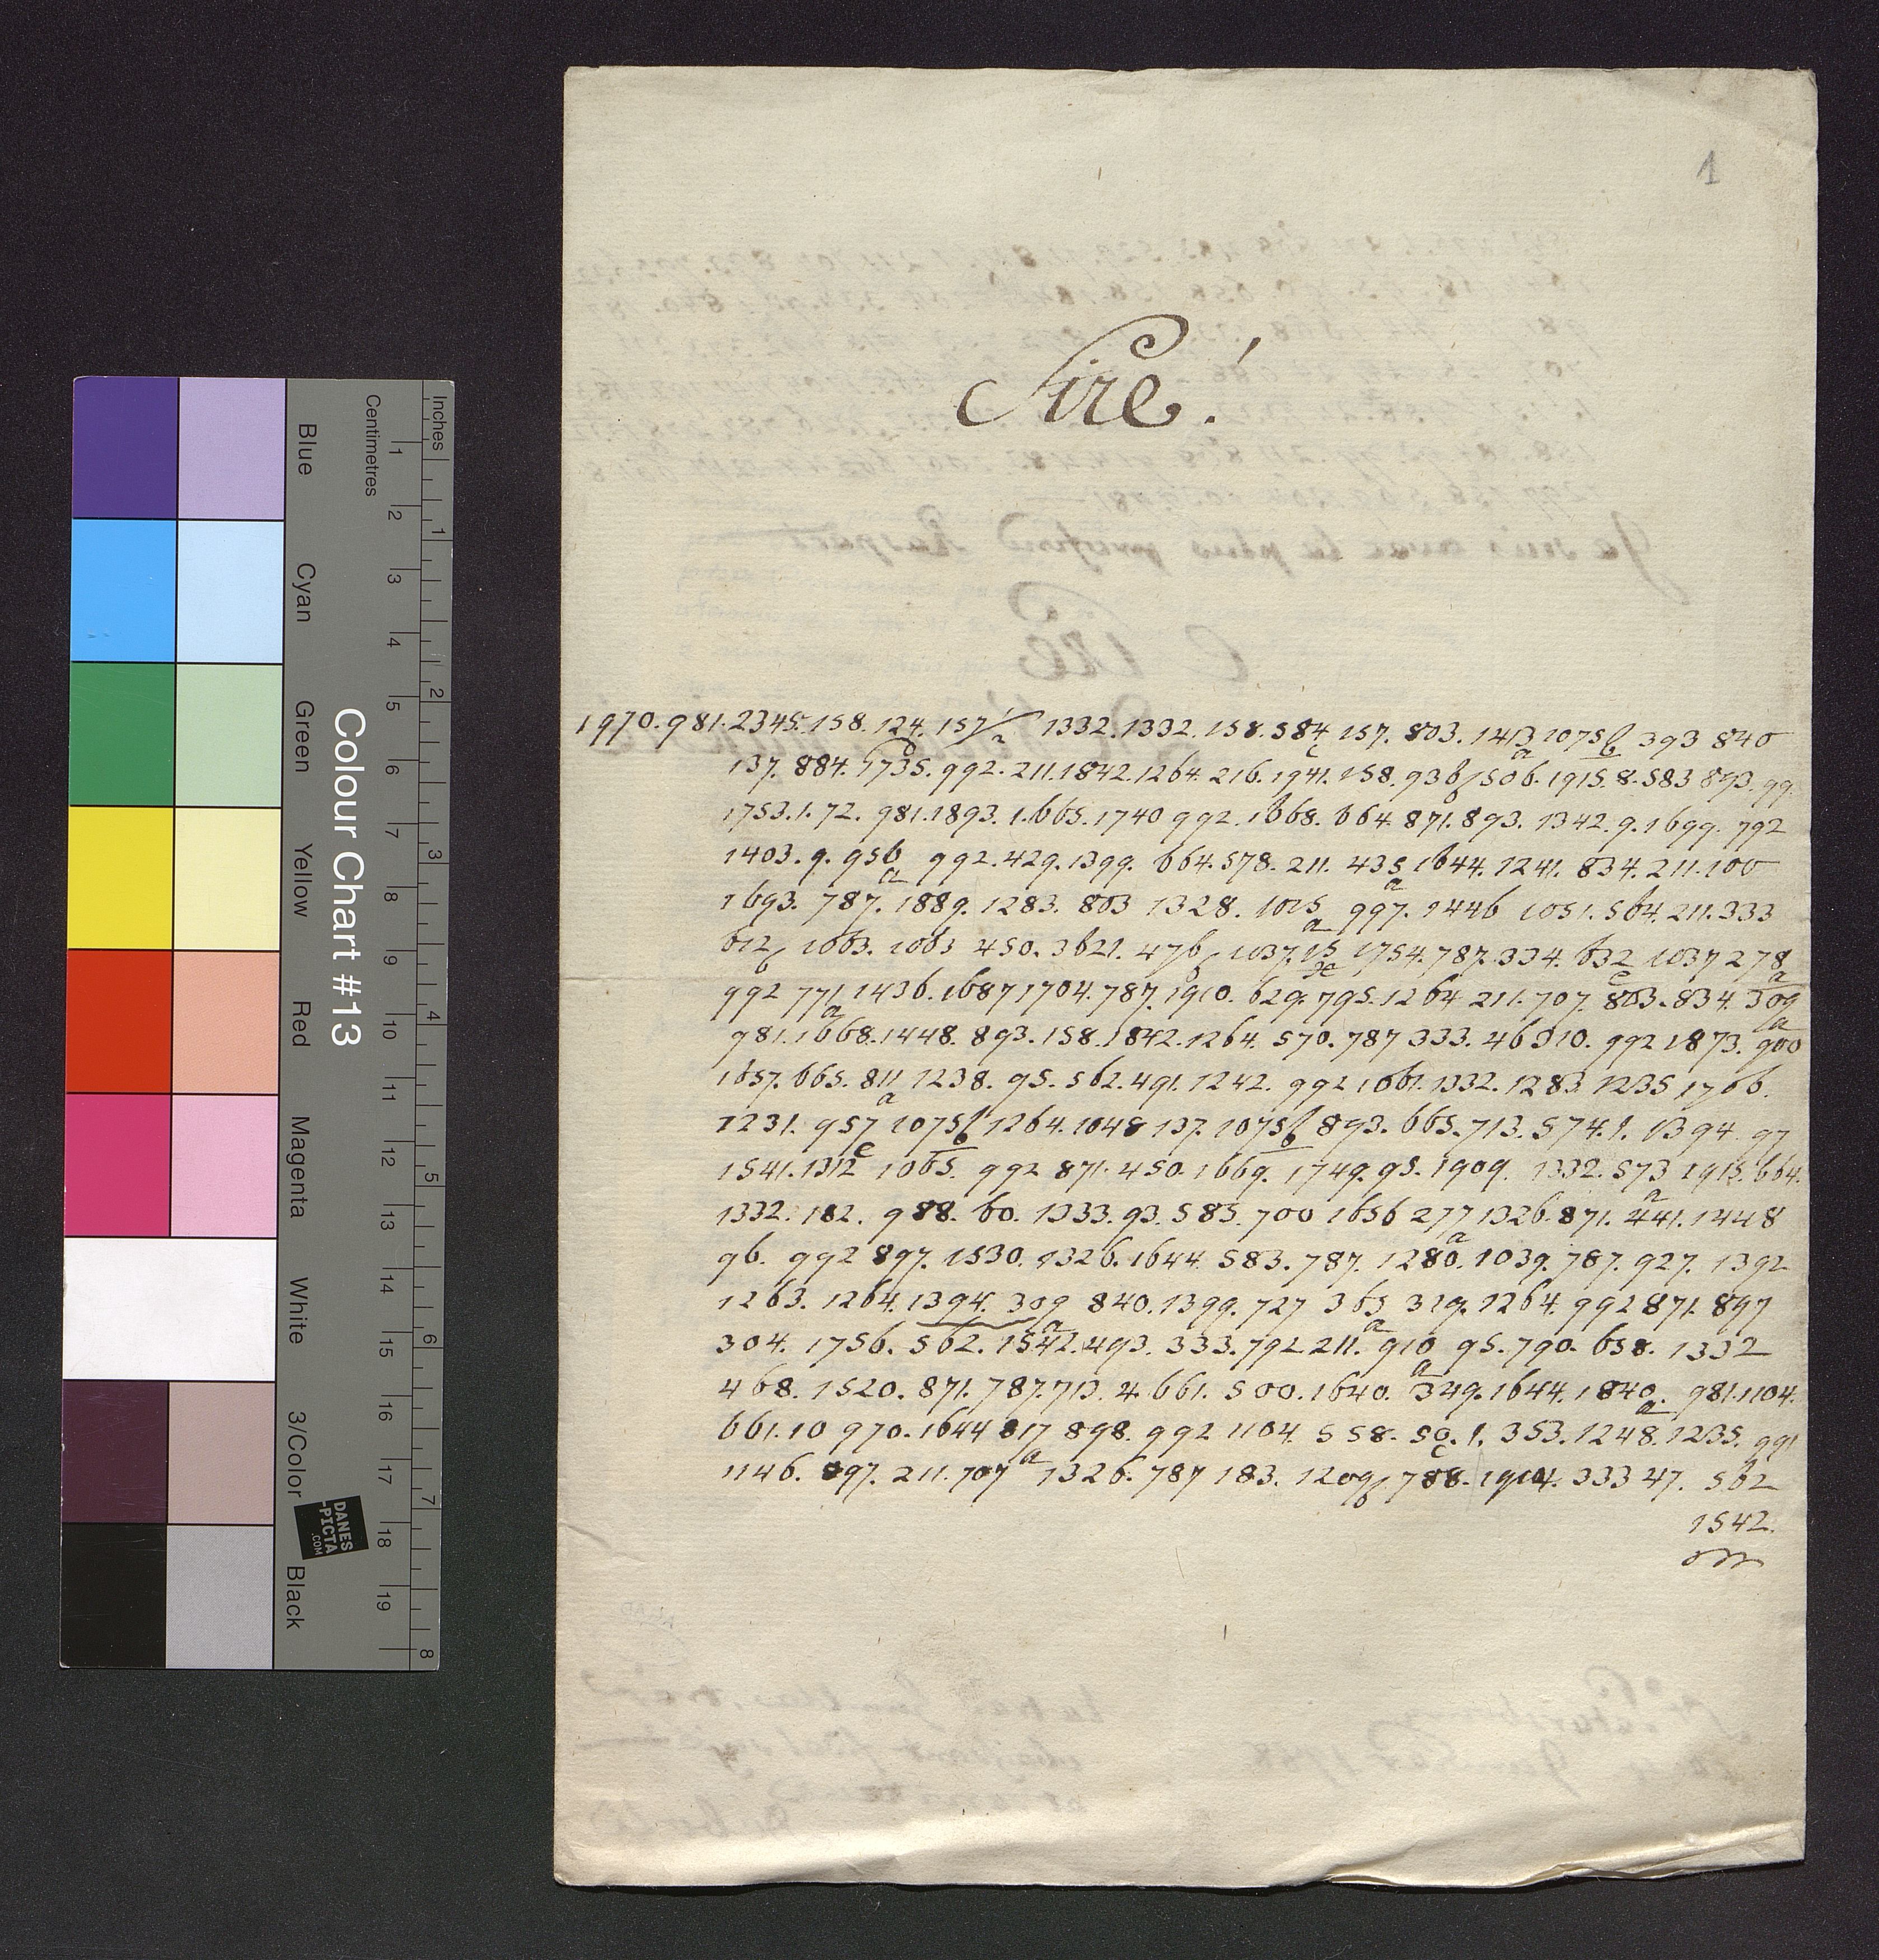 1
Sire!
1970. 981. 2345. 158. 124. 157/a 1332. 1332. 158. 584c 157. 803. 1413a 1075b 393 840
137. 884. 1735. 992. 211. 1842. 1264. 216. 1941. 158. 936/506. 1915. 8. 583 893. 99.
1753. 1. 72. 981. 1893. 1. 665. 1740 992. 1668. 664. 871. 893. 1342. 9. 1699. 792
1403. 9. 956a 992. 429. 1399. 664. 578. 211. 435a 1644. 1241. 834. 211. 100
1693. 787. 1889. 1283. 803 1328. 1015a 997. 1446 1051. 564. 211. 333
612b 1063. 1063 450. 3621. 476b 1037. 1754. 787. 334. 632c 1037 278a
992 771a 1436. 1687 1704. 787. 1910. 629. 795. 1264 211. 707. 863. 834. 309a
981. 1668. 1448. 893. 158. 1842. 1264. 570. 787 333. 46 310. 992 1873. 900
1657. 665. 811a 1238. 95. 562. 491. 1242. 992 1661. 1332. 1283. 1235 1766.
1231. 957c 1075b 1264. 1048 137. 1075b 893. 665. 713. 574. 1. 1394. 97
1541. 1312 1065. 992 871. 450. 1669. 1749. 95. 1909. 1332. 573a 1915. 664.
1332. 182. 988. 60. 1333. 93. 585. 700 1656 277a 1326. 871. 441. 1448
96. 992 897. 1530. 1326. 1644. 583. 787. 1280. 1039. 787. 927. 1392
1263. 1264. 1394. 309a 840. 1399. 727 365a 329. 1264. 992 871. 897
304. 1756. 562. 1542. 493. 333. 792 211. 910a 95. 790. 658. 1332
468. 1520. 871. 787. 713. 4. 661. 500. 1640. 349. 1644. 1840a. 981. 1104.
661. 10 970. 1644 817a 898. 992 1104. 558. 50c. 1. 353. 1248. 1235. 991
1146. 897. 211. 707 1326. 787 183. 1209b 788. 1914. 333 47. 562
1542.
Colour Chart #13
Inches
Centimetres
1 2 3 4 5 6 7 8 9 10 11 12 13 14 15 16 17 18 19
1 2 3 4 5 6 7 8
Blue
Cyan
Green
Yellow
Red
Magenta
White
3/Color
Black
DANES
-PICTA
.COM